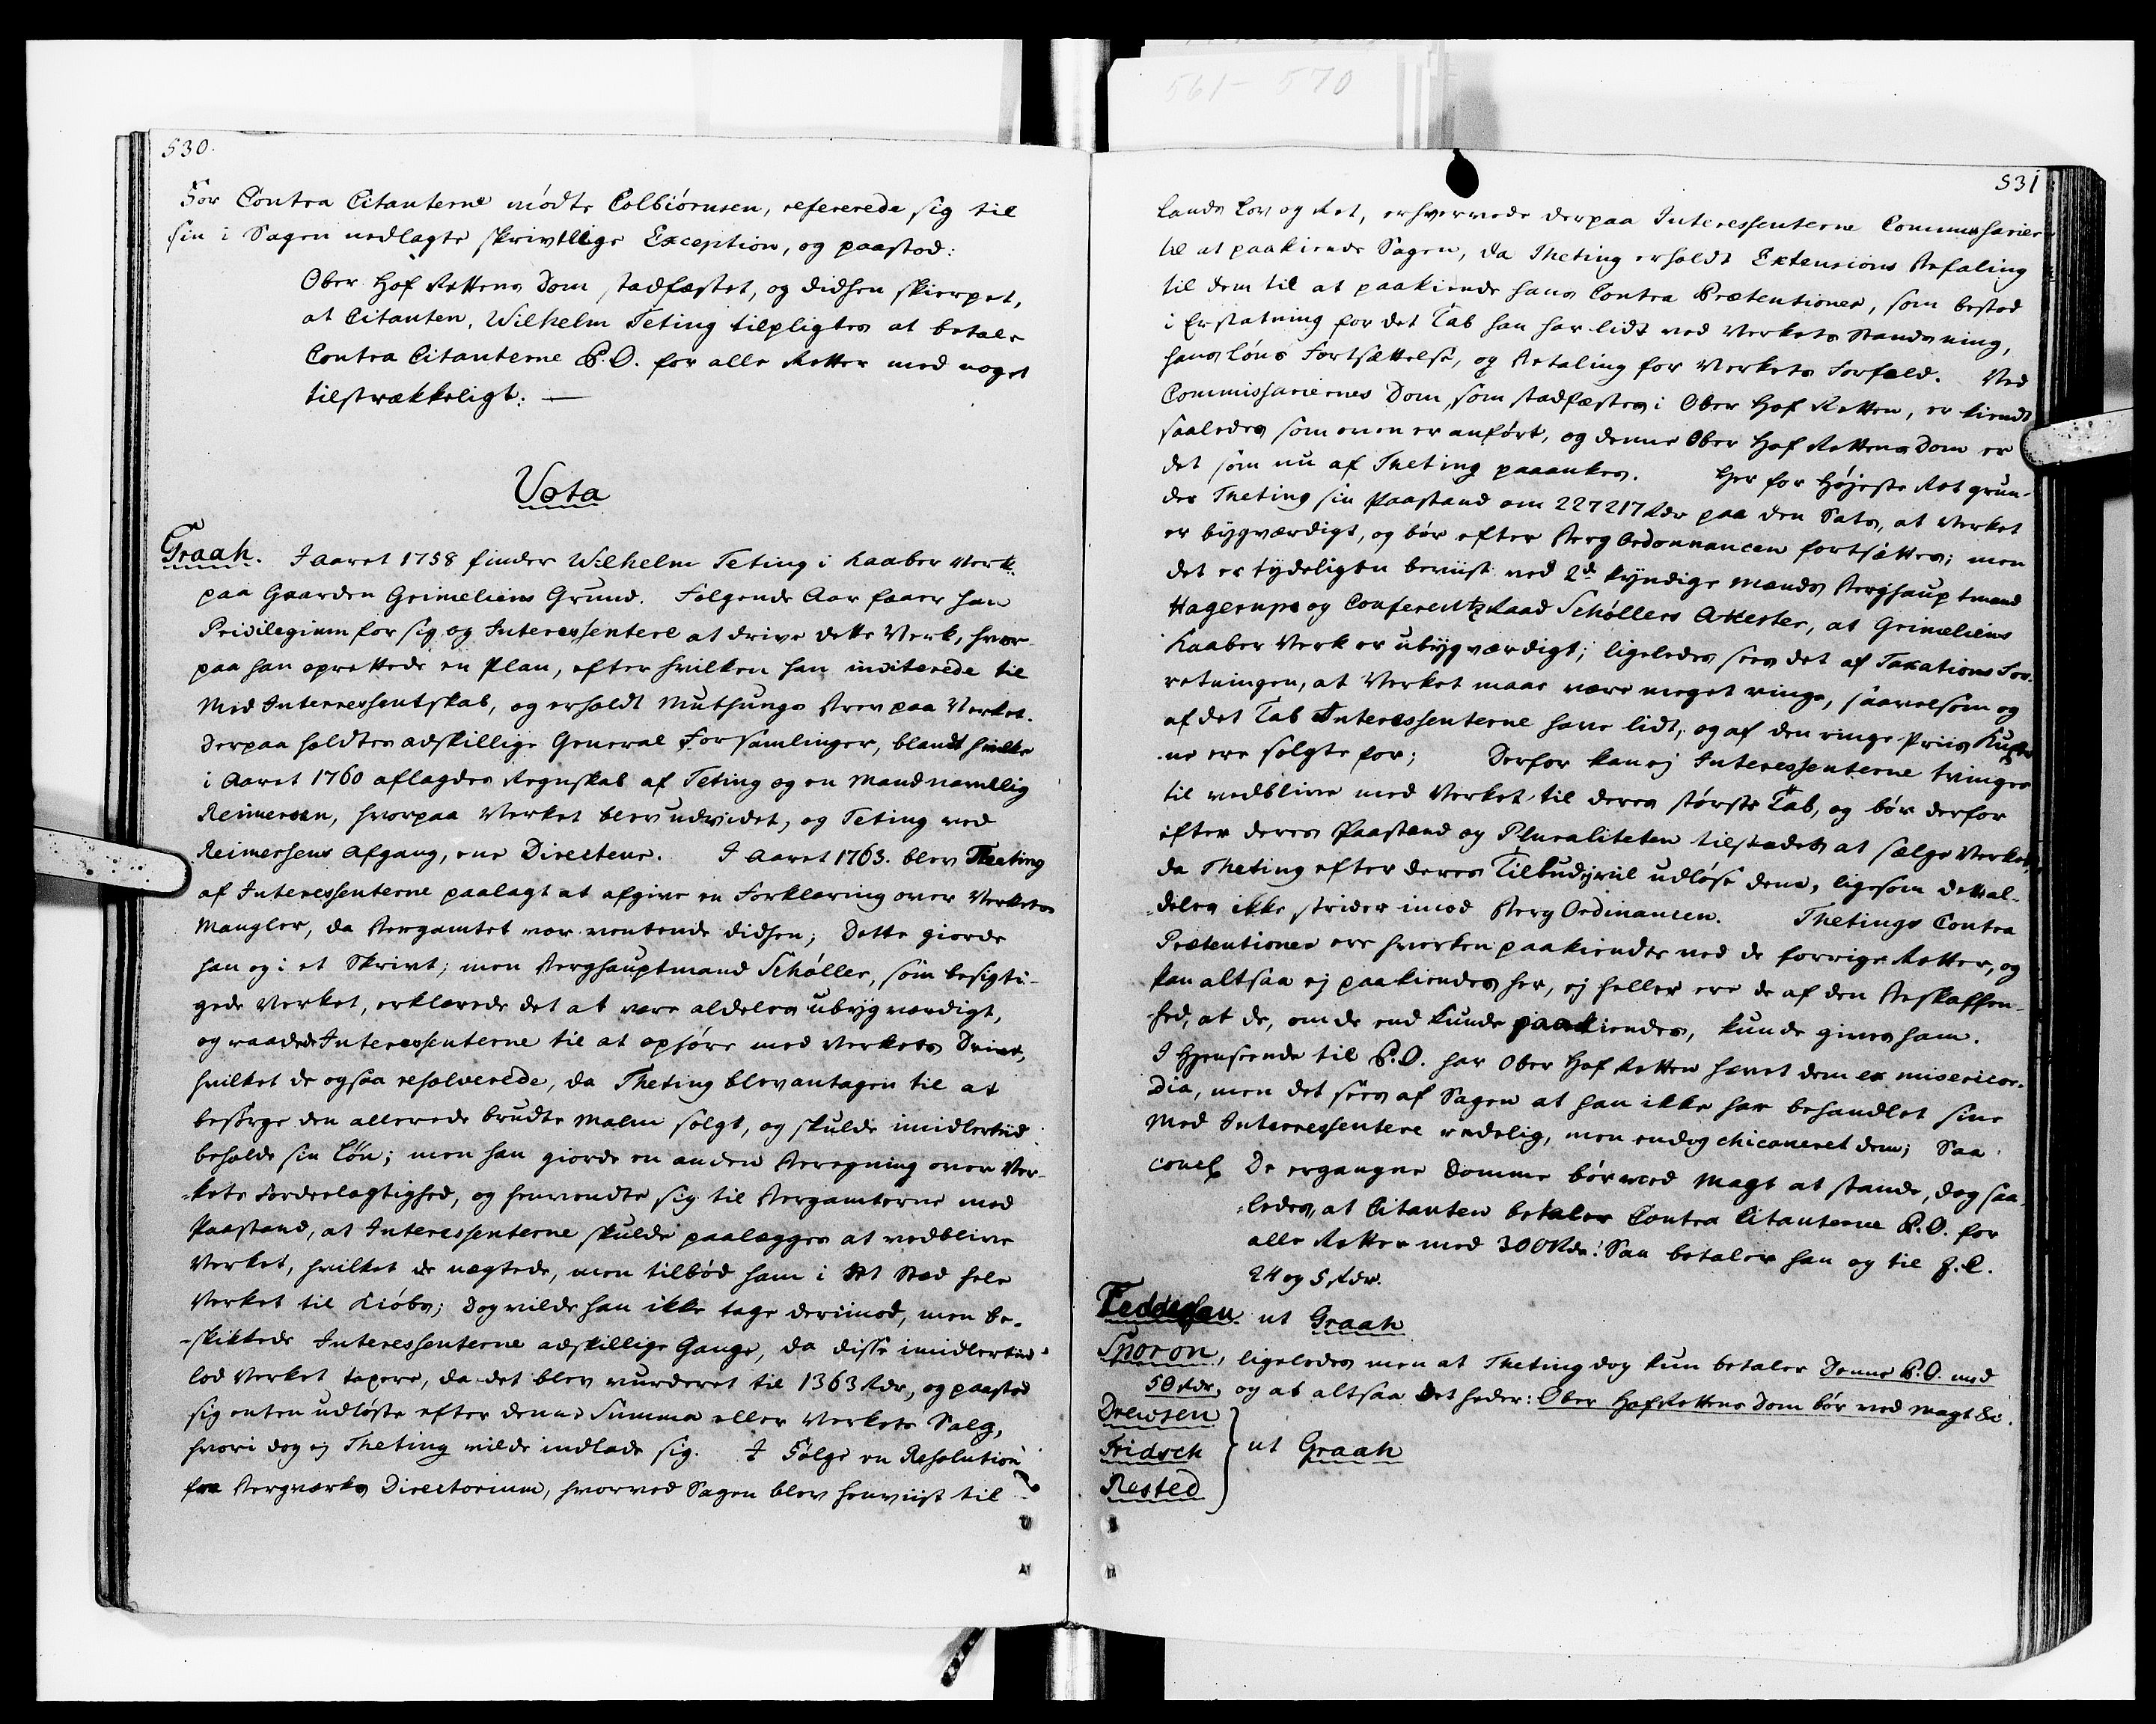 561 - 570
530.
For Contra Citanterne mödte Colbiörnsen, refererede sig til
sin i Sagen nedlagte skrivtlige Exception, og paastod:
Ober Hof Rettens Dom stadfæstet, og didhen skierpet,
at Citanten, Wilhelm Teting tilpligtes at betale
Contra Citanterne P.O. for alle Retter med noget
tilstrækkeligt. —
Vota
Graah. I aaret 1758 finder Wilhelm Teting i Kaaber Verk
paa Gaarden Grimeliens Grund. Følgende Aar faaer han
Privilegium for sig og Interessentere at drive dette Verk, hvor-
paa han oprettede en Plan, efter hvilken han inviterede til
Med Interressentskab, og erholdt Muthungs Brev paa Verket.
Derpaa holdtes adskillige General Forsamlinger, blandt hvilke
i Aaret 1760 aflagdes Regnskab af Teting og en Mand navnllig
Reimersen, hvorpaa Verket blev udvidet, og Teting ved
Reimersens Afgang, ene Directeur. I Aaret 1763. blev Theting
af Interessenterne paalagt at afgive en Forklaring over Verkets
Mangler, da Bergamtet var ventende didhen; Dette giorde
han og i et Skrivt; men Berghauptmand Schøller, som besigti-
gede Verket, erklærede det at være aldeles ubygværdigt,
og raadede Interessenterne til at ophøre med Verkets Drivt,
hvilket de ogsaa resolverede, da Theting blev antagen til at
besørge den allerede brudte Malm solgt, og skulde imidlertiid
beholde sin Løn; men han giorde en anden Beregning over Ver-
-kets Fordeelagtighed, og henvendte sig til Bergamterne med
Paastand, at Interessenterne skulde paalægges at vedblive
Verket, hvilket de nægtede, men tilbød ham i det Sted hele
Verket til Kiøbs; Dog vilde han ikke tage derimod, men be-
-skikkede Interessenterne adskillige Gange, da disse imidlertiid
lod Verket taxere, da det blev vurderet til 1363 Rdr, og paastod
sig enten udløste efter denne Summa eller Verkets Salg,
hvori dog ej Theting vilde indlade sig. I Følge en Resolution
fra Bergværks Directorium, hvorved Sagen blev henviist til
531
Lands Lov og Ret, erhvervede derpaa Interessenterne Commissarier
til at paakiende Sagen, da Theting erholdt Extensions Befaling
til dem til at paakiende hans Contra Prætentioner, som bestod
i Erstatning for det Tab han har lidt ved Verkets Standsning,
hans Løns Fortsættelse, og Betaling for Verkets Forfald. Ved
Commissariernes Dom, som stadfæstes i Ober Hof Retten, er kiendt
saaledes som oven er anført, og denne Ober Hof Rettens Dom er
det som nu af Theting paaankes. Her for Højeste Ret grun-
der Theting sin Paastand om 227217 Rdr paa den Sats, at Verket
er bygværdigt, og bør efter Berg Ordonnancen fortsættes; men
det er tydeligen beviist ved 2de kyndige Mænds Berghauptmand
Hagerups og Conferentz Raad Schøllers Attester, at Grimeliens
Kaaber Verk er ubygværdigt; ligeledes sees det af Taxations For-
retningen, at Verket maae være meget ringe, saavelsom og
af det Tab Interessenterne have lidt, og af den ringe Priis Kuxer
-ne ere solgte for; Derfor kan ej Interessenterne tvinges
til vedblive med Verket til deres største Tab, og bør derfor
efter deres Paastand og Pluraliteten tilstedes at sælge Verket,
da Theting efter deres Tilbud ej vil udløse dem, ligesom dette al-
-deles ikke strider imod Berg Ordinancen. Thetings Contra
Prætentioner ere hverken paakiendte ved de forrige Retter, og
kan altsaa ej paakiendes her, ej heller ere de af den Beskaffen-
-hed, at de, om de end kunde paakiendes, kunde gives ham.
I Henseende til P.O. har Ober Hof Retten hævet dem ex misericor-
dia, men det sees af Sagen at han ikke har behandlet sine
Med Interressentere redelig, men endog chicaneret dem; Saa
concl De ergangne Domme bør ved Magt at stande, dog saa-
-ledes, at Citanten betaler Contra Citanterne P.O. for
alle Retter med 300 Rdr: Saa betaler han og til J.C.
24 og 5 Rdr.
Feddersen. ut Graah
Sporon, ligeledes men at Theting dog kun betaler Denne P.O. med
50 Rdr, og at altsaa det heder: Ober Hof Rettens Dom bør ved Magt &c.
Drewsen
Fridsch } ut Graah
Rested